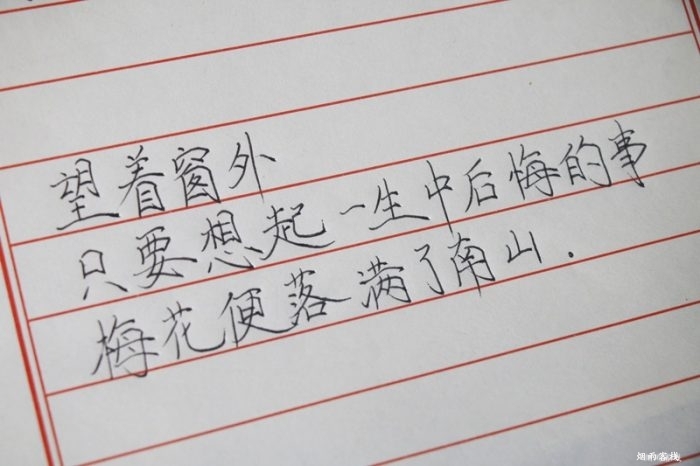 望着窗外
只要想起一生中后悔的事
梅花便落满了南山.
烟雨客栈